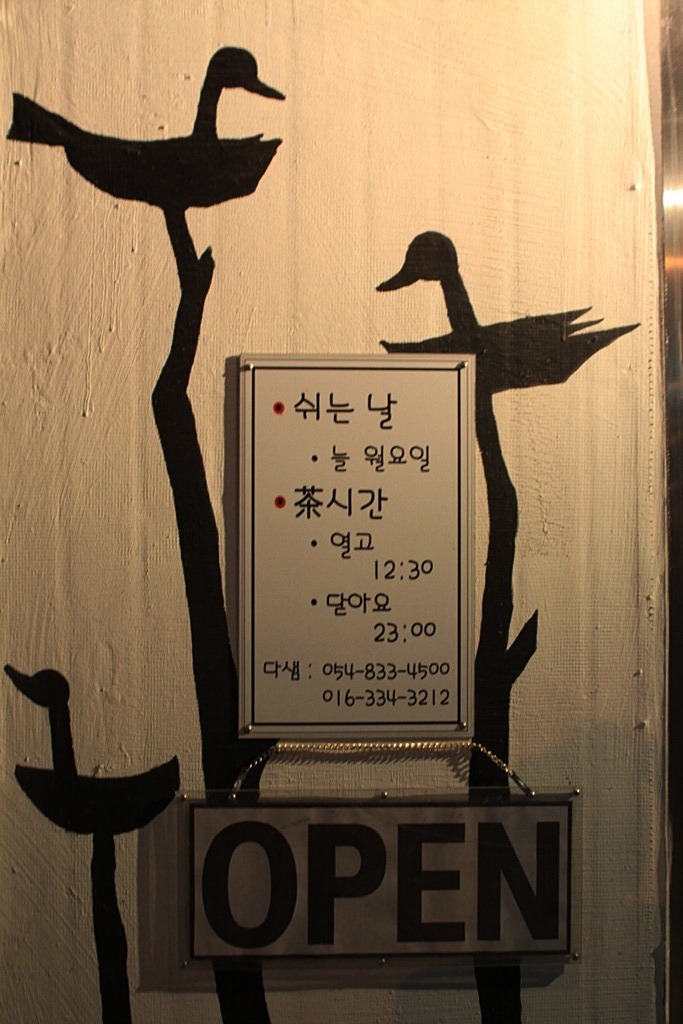 • 쉬는 날
• 늘 월요일
• 茶시간
• 열고
12:30
• 닫아요
23:00
다샘 : 054-833-4500
016-334-3212
OPEN